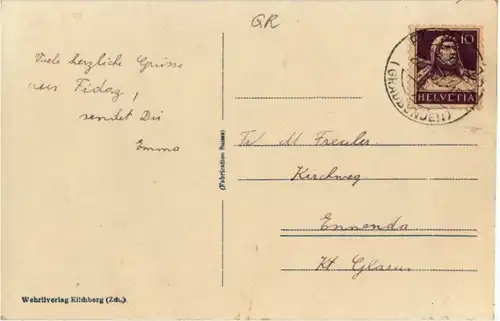 GR
Viele herzliche Grüsse
aus Fidaz,
sendet Dir
Emma
(Fabrication Suisse)
10
HELVETIA
(GRAUBÜNDEN)
Frl M Freuler
Kirchweg
Ennenda
Kt Glarus
Wehrliverlag Kilchberg (Zch.)